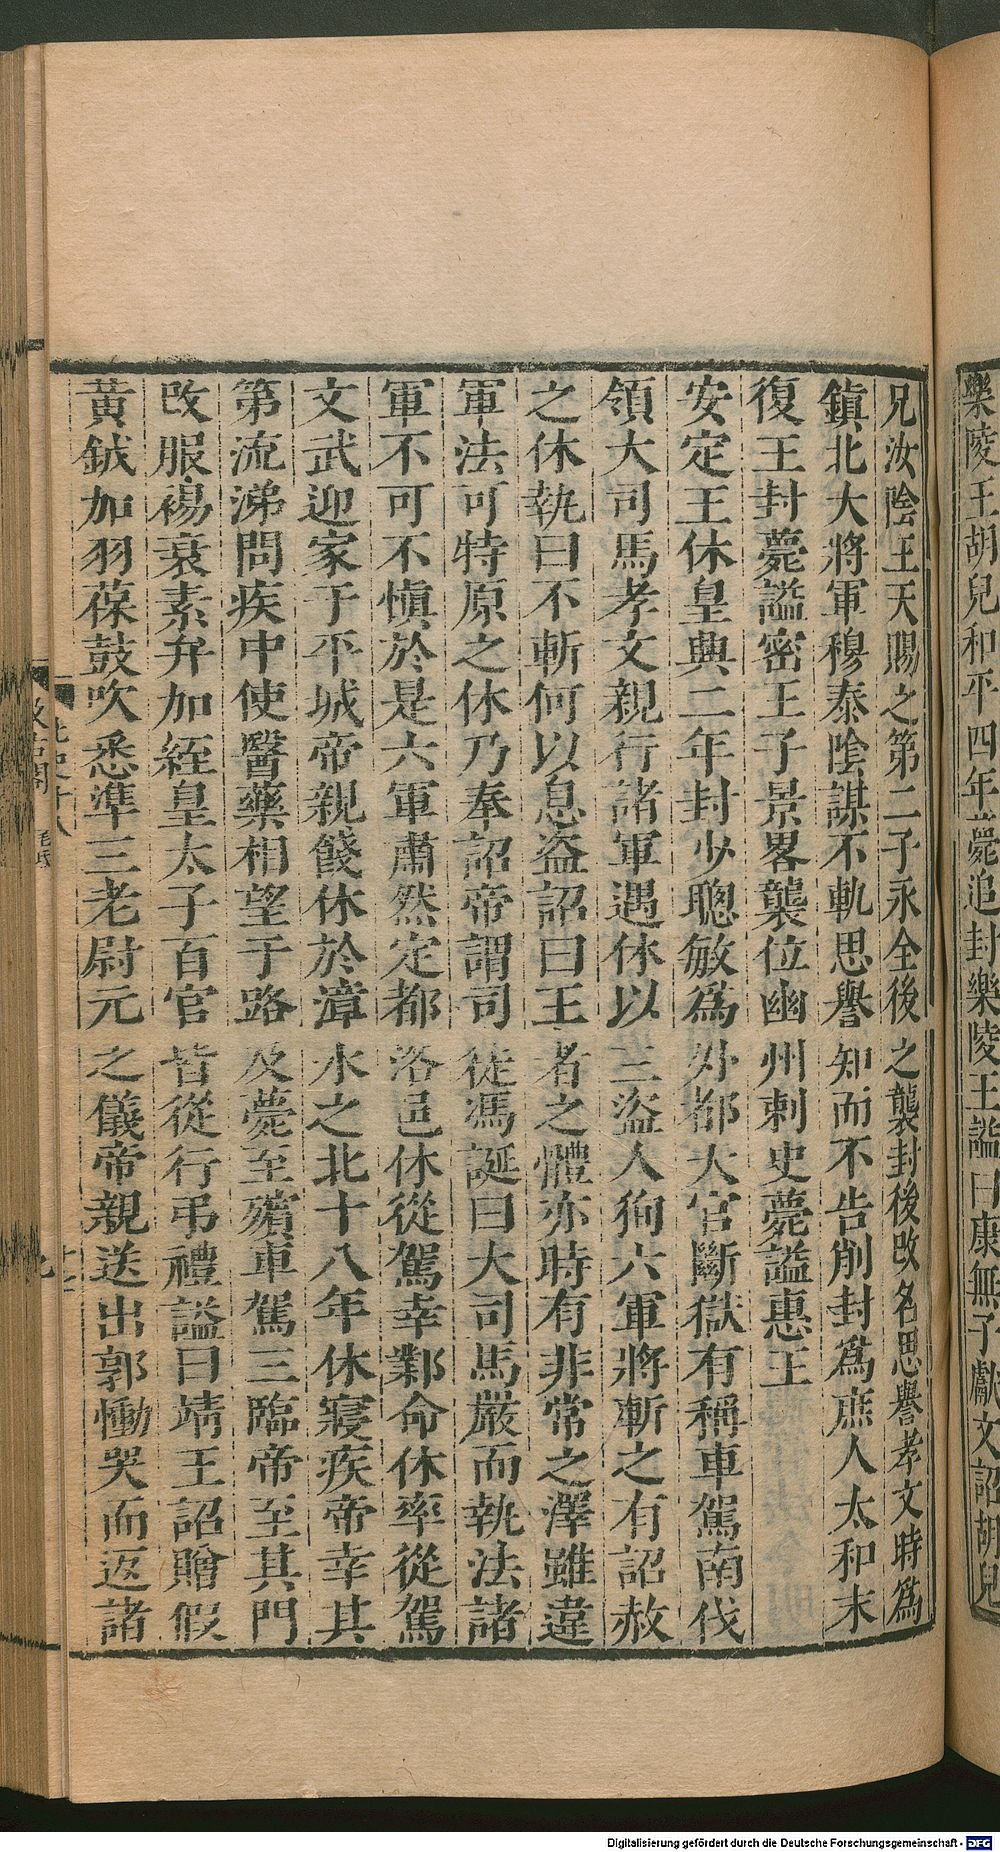 樂陵王胡兒和平四年薨追封樂陵王謚曰康無子獻文詔胡兒
兄汝陰王天賜之第二子永全後之襲封後改名思譽孝文時爲
鎮北大將軍穆泰陰謀不軌思譽知而不告削封爲庶人太和末
復王封薨謚密王子景畧襲位幽州刺史薨謚惠王
安定王休皇興二年封少聰敏爲外都大官斷獄有稱車駕南伐
領大司馬孝文親行諸軍遇休以三盜人狥六軍將斬之有詔赦
之休執曰不斬何以息盜詔曰王者之體亦時有非常之澤雖違
軍法可特原之休乃奉詔帝謂司徒馮誕曰大司馬嚴而執法諸
軍不可不愼於是六軍肅然定都洛邑休從駕幸鄴命休率從駕
文武迎家于平城帝親餞休於漳水之北十八年休寢疾帝幸其
第流涕問疾中使醫藥相望于路及薨至殯車駕三臨帝至其門
改服裼衰素弁加絰皇太子百官皆從行弔禮謚曰靖王詔贈假
黃鉞加羽葆鼓吹悉準三老尉元之儀帝親送出郭慟哭而返諸
北史十八
汲古閣
毛氏
Digitalisierung gefördert durch die Deutsche Forschungsgemeinschaft - DFG